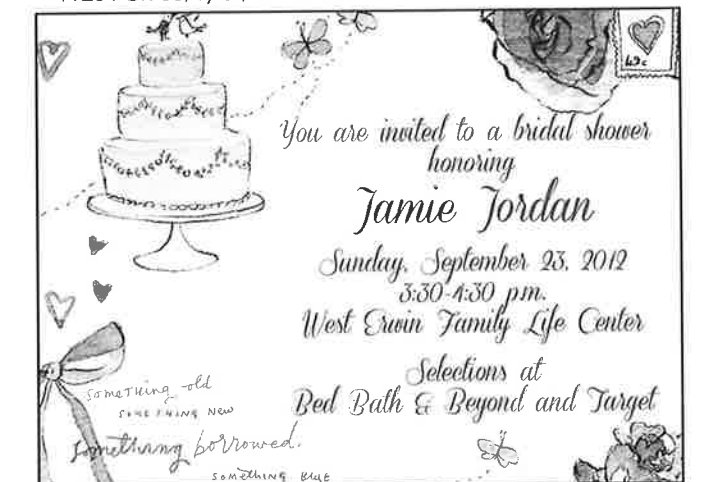 You are invited to a bridal shower
honoring
Jamie Jordan
Sunday, September 23, 2012
3:30-4:30 p.m.
West Erwin Family Life Center
Selections at
Bed Bath & Beyond and Target
something old
SOMETHING NEW
Something borrowed.
SOMETHING BLUE
49c